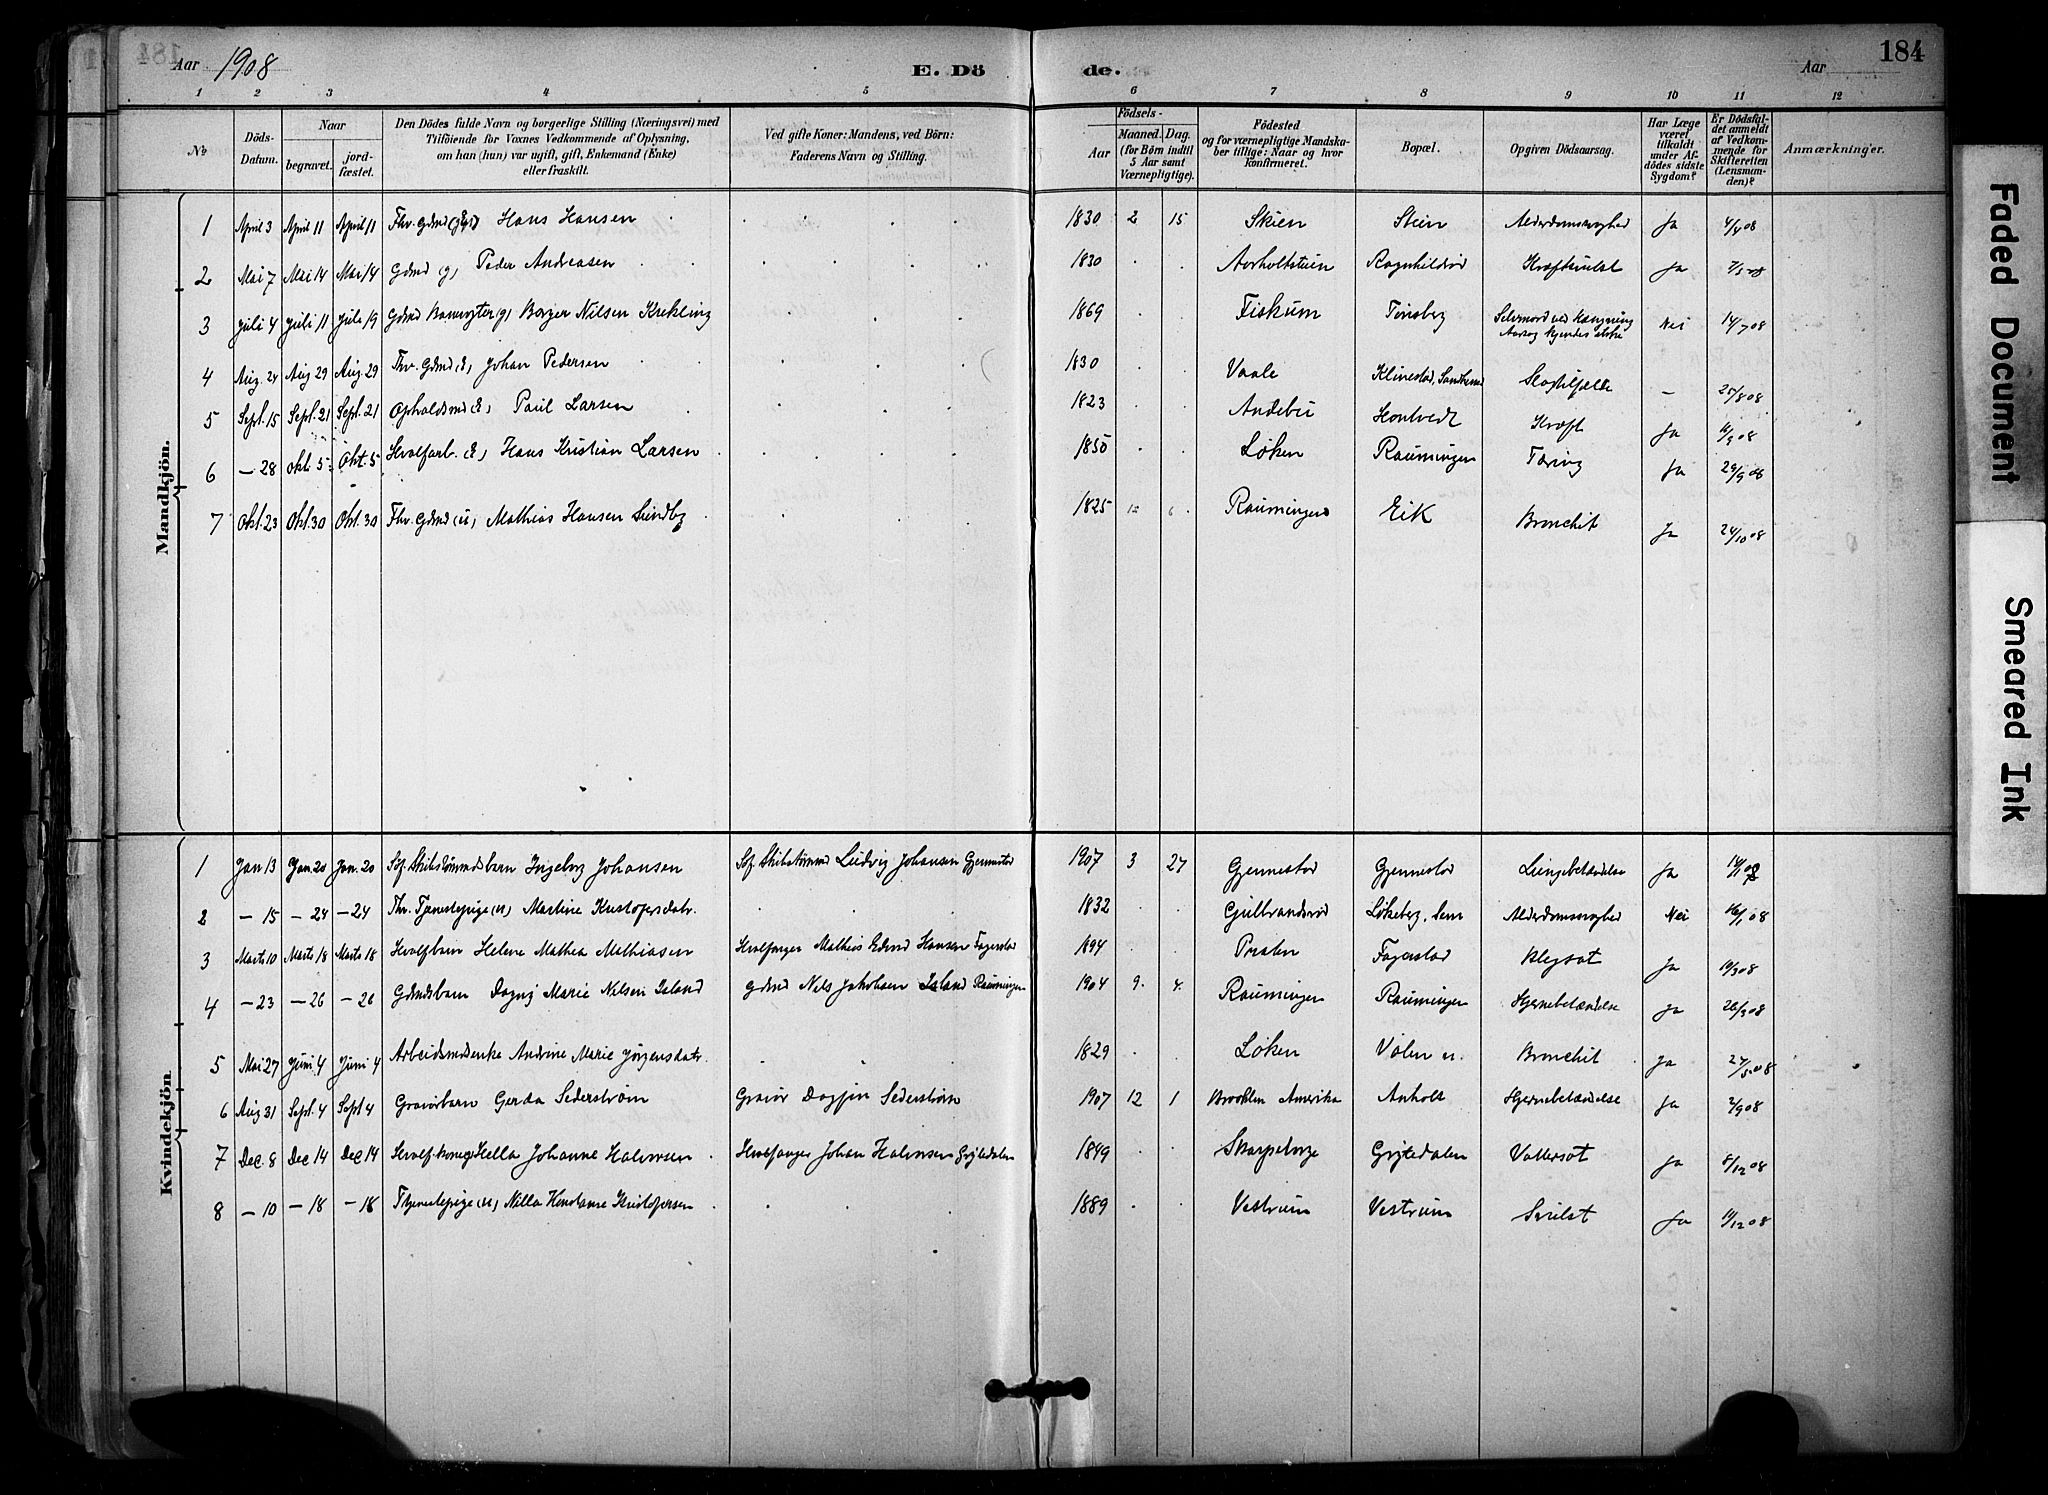 184
Aar 1908
E. Dö
de.
Aar
184
1 2 3 4 5 6 7 8 9 10 11 12
№
Döds-
Datum.
Naar
begravet.
jord-
fæstet.
Den Dödes fulde Navn og borgerlige Stilling (Næringsvei) med
Tilföiende for Voxnes Vedkommende af Oplysning,
om han (hun) var ugift, gift, Enkemand (Enke)
eller fraskilt.
Ved gifte Koner: Mandens, ved Börn:
Faderens Navn og Stilling.
Födsels-
Aar
Maaned. Dag.
(for Börn indtil
5 Aar samt
Værnepligtige).
Födested
og for værnepligtige Mandska-
ber tillige: Naar og hvor
konfirmeret.
Bopæl.
Opgiven Dödsaarsag.
Har Læge
været
tilkaldt
under Af-
dödes sidste
Sygdom?
Er Dödsfal-
det anmeldt
af Vedkom-
mende for
Skifteretten
(Lensman-
den)?
Anmærkninger.
Mandkjön.
1 April 3 April 11 April 11 Fhv. Gdmd Hans Hansen 1830 2 15 Skien Stein Alderdomssvaghed Ja 4/4 08
2 Mai 7 Mai 14 Mai 14 Gdmd (g) Peder Andreasen 1830 Aarholtstuen Ragnhildrød Kræftsvulst Ja 7/5 08
3 Juli 4 Juli 11 Juli 19 Gdmd Banevogter (g) Borger Nilsen Krekling 1869 Fiskum Tønsberg Selvmord ved Hængning
Aarsag kjendes ikke Nei 14/7 08
4 Aug. 24 Aug 29 Aug. 29 Fhv. Gdmd (E) Johan Pedersen 1830 Vaale Klinestad, Sandherred Slagtilfælde — 25/8 08
5 Sept. 15 Sept. 21 Sept. 21 Opholdsmd (E) Paul Larsen 1823 Andebu Hontvedt Kræft Ja 16/9 08
6 — 28 Okt. 5 Okt. 5 Hvalfarb. (E) Hans Kristian Larsen 1850 Løken Raumingen Tæring Ja 29/9 08
7 Okt. 23 Okt 30 Okt. 30 Fhv. Gdmd (u) Mathias Hansen Sundby 1825 12 6 Raumingen Eik Bronchit Ja 24/10 08
Kvindekjön.
1 Jan 13 Jan. 20 Jan. 20 Søf. Skibstømmdsbarn Ingeborg Johansen Søf. Skibstømmd Ludvig Johansen Gjennestad 1907 3 27 Gjennestad Gjennestad Lungebetændelse Ja 14/1 08
2 — 15 — 24 — 24 Fhv. Tjenestepige (u) Martine Kristofersdatr. 1832 Gulbrandsrød Løkeberg, Sem Alderdomssvaghed Nei 16/1 08
3 Marts 10 Marts 18 Marts 18 Hvalfbarn Helene Mathea Mathiasen Hvalfanger Mathias Edvard Hansen Fagerstad 1894 Prisben Fagerstad Blegsot Ja 10/3 08
4 — 23 — 26 — 26 Gdmdsbarn Dagny Marie Nilsen Island Gdmd Nils Jakobsen Island Raumingen 1904 9 4 Raumingen Raumingen Hjernebetændelse Ja 26/3 08
5 Mai 27 Juni 4 Juni 4 Arbeidsmdsenke Andrine Marie Jørgensdatr. 1829 Løken Valen n. Bronchit Ja 27/5 08
6 Aug 31 Sept. 4 Sept 4 Gravørbarn Gerda Sederstrøm Gravør Dagfin Sederstrøm 1907 12 1 Brooklen Amerika Anholt Hjernebetændelse Ja 2/9 08
7 Dec. 8 Dec 14 Dec 14 Hvalf.kone Hella Johanne Halvorsen Hvalfanger Johan Halvorsen Grytedalen 1849 Skarpeborge Grytedalen Vattersot Ja 8/12 08
8 — 10 — 18 — 18 Tjenestepige (u) Nilla Konstanse Kristofersen 1889 Vestrum Vestrum Svulst Ja 11/12 08
Faded Document
Smeared Ink